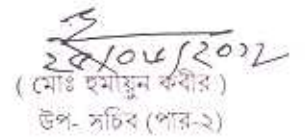 ২৫/০৫/২০২২
( মোঃ হুমায়ুন কবীর )
উপ- সচিব (পার-২)